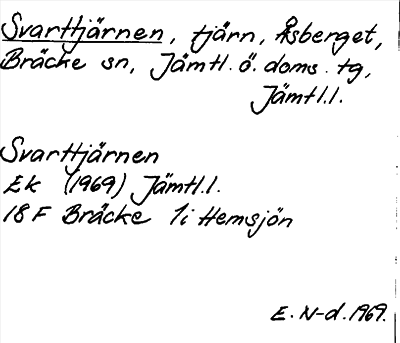 Svarttjärnen, tjärn, Åsberget,
Bräcke sn, Jämtl. ö. doms. tg,
Jämtl.l.
Svarttjärnen
Ek (1969) Jämtl.l.
18 F Bräcke 1i Hemsjön
E. N-d. 1969.